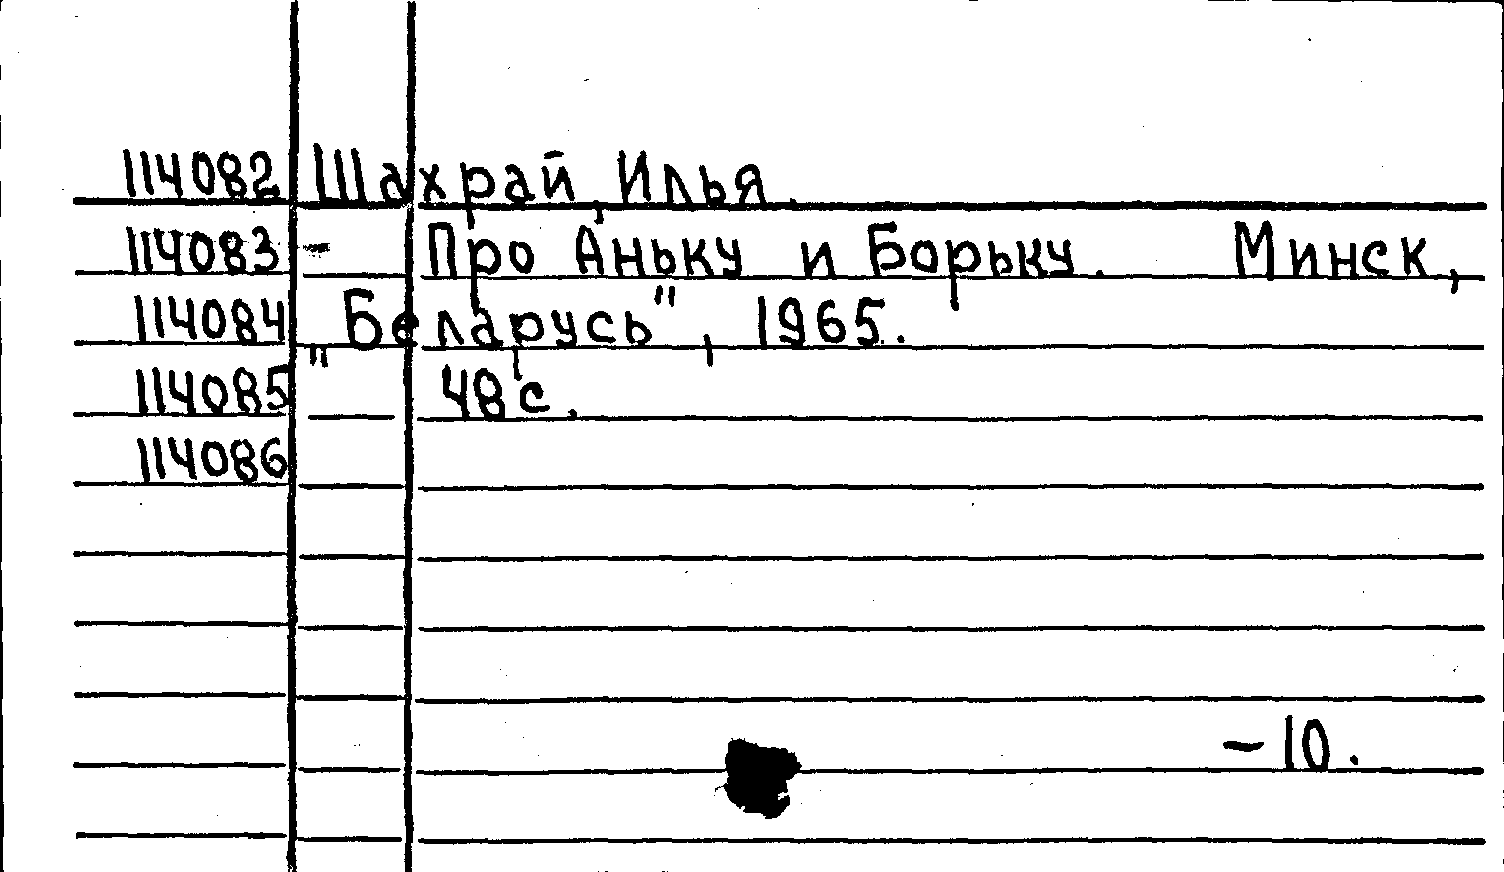 114082 Шахрай, Илья.
114083 - Про Аньку и Борьку. Минск,
114084 „Беларусь", 1965.
114085 48 с.
114086
-10.